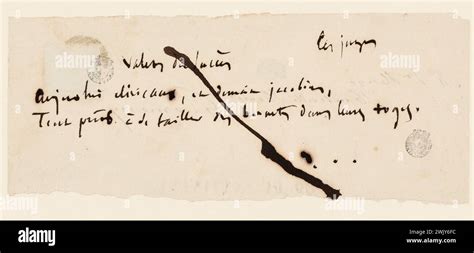 Les juges
Valets du succès
Aujourd'hui cléricaux, et demain jacobins,
Tout prêts à se tailler des bonnets dans leurs toges.
alamy
Image ID: 2WJY6FC
www.alamy.com